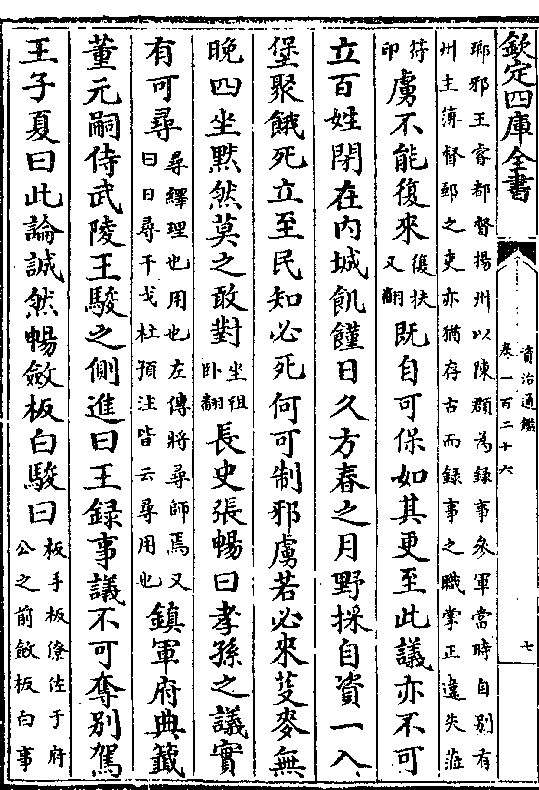 欽定四庫全書
資治通鑑
卷一百二十六
七
瑯邪王睿都督揚州以陳頵為録事參軍當時自别有
州主簿督郵之吏亦猶存古而録事之職掌正違失涖
符印虜不能復來復扶又翻既自可保如其更至此議亦不可
立百姓閉在内城飢饉日久方春之月野採自資一入
堡聚餓死立至民知必死何可制邪虜若必來芟麥無
晚四坐黙然莫之敢對坐徂卧翻長史張暢曰孝孫之議實
有可尋尋繹理也用也左傳將尋師焉又曰日尋干戈杜預注皆云尋用也鎮軍府典籖
董元嗣侍武陵王駿之側進曰王録事議不可奪别駕
王子夏曰此論誠然暢斂板白駿曰板手板僚佐于府公之前斂板白事